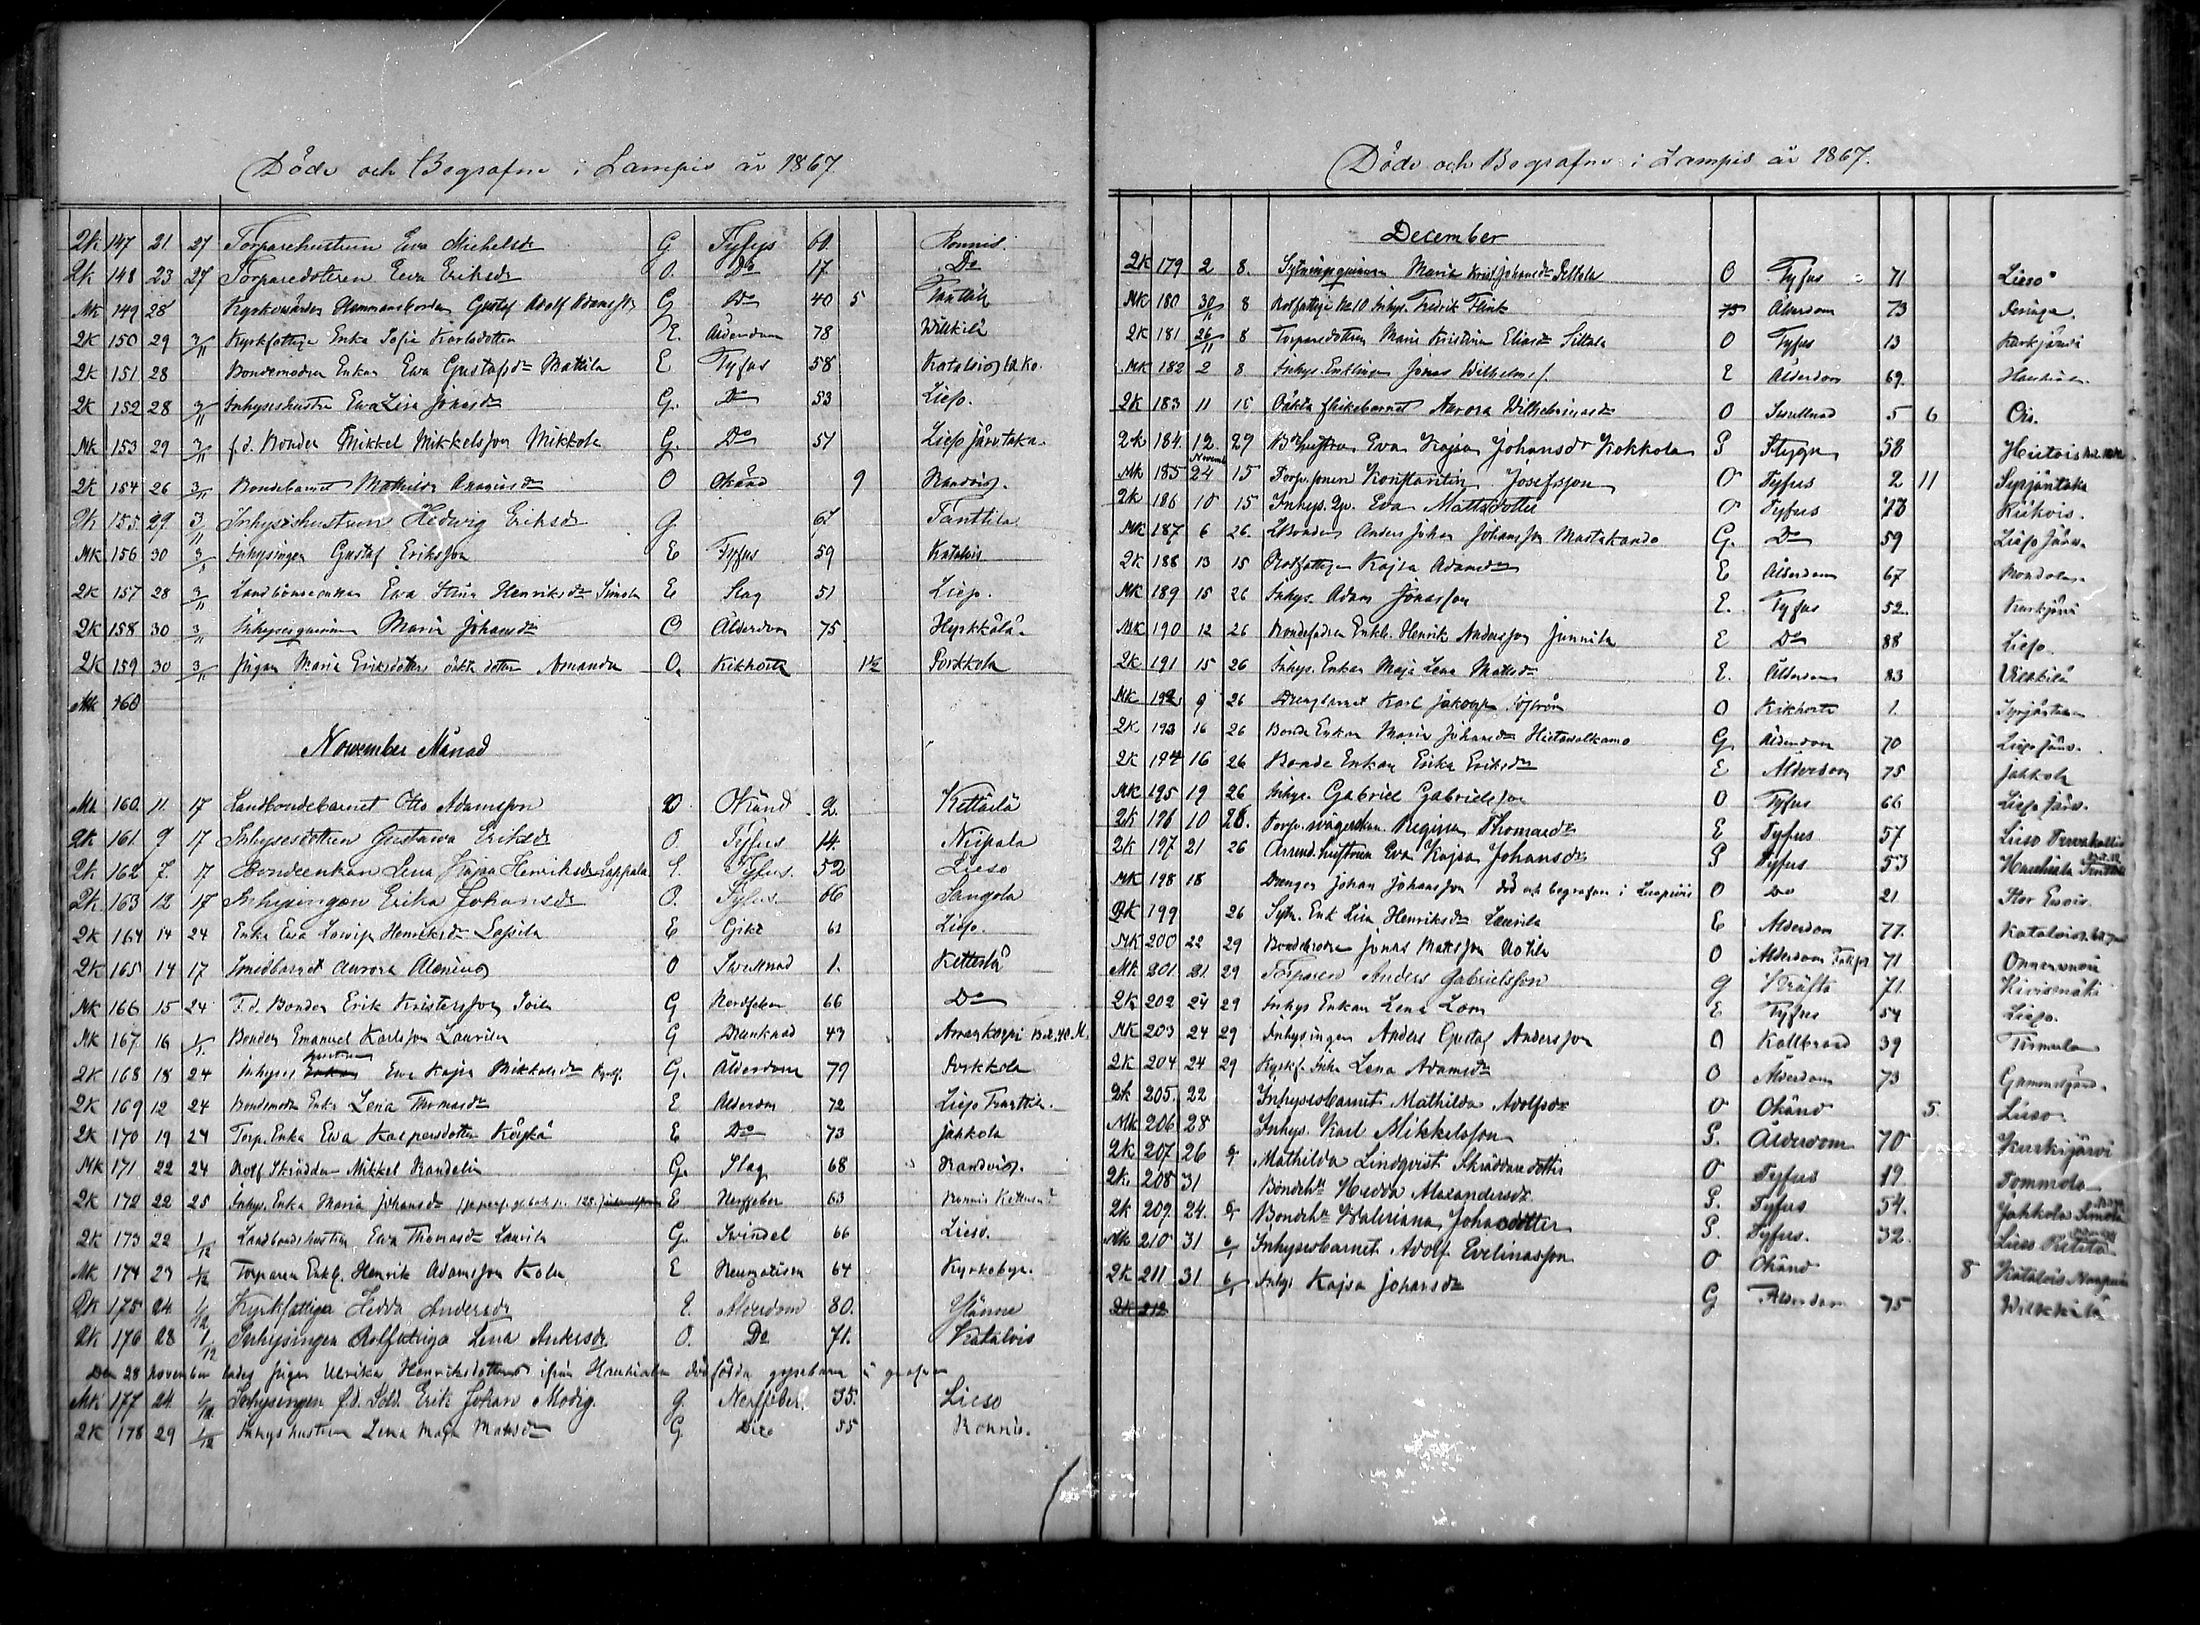 Döde och Begrafne i Lampis år 1867.
2K 147 21 27 Torparehustrun Eva Michelsdr G Tyfus 60. Ronnis.
2K 148 23 27 Torparedotren Eeva Eriksdr O. Do 17 Do
Mk 149 28 Kyrkovärden Gustaf Adolf G Do 40 5 Tanttila
2K 150 29 3/11 Kyrkfattiga Enka Sofia Karlsdotter E. Ålderdom 78 Wilkkilä
2K 151 28 Bondemodren Enkan Ewa Gustafsdr Mattila E Tyfus 58 Katalois
2K 152 28 3/11 Inhyseshustru Ewa Lisa Jonasdr G. Do 53 Lieso.
MK 153 29 3/11 f.d. Bonden Mikkel Mikkelsson Mikkola G. Do 51 Lieso Järventaka.
2K 154 26 3/11 Bondebarnet Mathilda O Okänd 9
2K 155 29 3/11 Inhyseshustrun Hedwig Eriksdr G 67 Tanttila
MK 156 30 3/11 Inhysingen Gustaf Eriksson E Tyfus 59 Katalois
2K 157 28 3/11 Landbondeenkan Eva Stina Henriksdr Simola E Slag 51 Lieso.
2K 158 30 3/11 Inhysesquinnan Maria Johansdr O Ålderdom 75 Hyrkkälä.
2K 159 30 3/11 Pigan Maria Eriksdotters oäkta dotter Amanda O. Kikhosta 1½ Porkkola
Mk 160
November Månad
Mk 160 11 17 Landbondebarnet Otto Adamsson O Okänd 2. Kettärlä
2K 161 9 17 Inhysesdottren Gustava Eriksdr O. Tyfus 14. Niipala
2K 162 7 17 Bondeenkan Lena Kajsa Henriksdr Lappala E. Tyfus 52 Lieso
2K 163 12 17 Inhysingen Erika Johansdr O. Tyfus 66 Sangola
2K 164 14 24 Enka Eva Lowisa Henriksdr E Gikt 61 Lieso.
2K 165 14 17 Smedbarnet Aurora Alenius O Swullnad 1. Ketterlä
MK 166 15 24 F.d. Bonden Erik Kristersson G Nerffeber 66 Do
MK 167 16 1/12 Bonden Emanuel Karlsson Laurila G Drunknad 47
2K 168 18 24 Inhyses hustrun Enkan Ewa Kajsa Mikkelsdr Kyrkf. G. Ålderdom 79 Porkkola
2K 169 12 24 Bondemodr Enka Lena Thomasdr E Ålderdom 72 Lieso Tanttila
2K 170 19 24 Torp. Enka Eva Kaspersdotter E Do 73 Jahkola
MK 171 22 24 Rotf Skrädden Mikkel Randelin G. Slag 68
2K 172 22 25 Inhys. Enka Maria Johansdr E Nerffeber 63
2K 173 22 1/12 Landbondehustrun Ewa Thomasdr Laurila G. Swindel 66 Lieso.
MK 174 23 1/12 Torparen Enkl. Henrik Adamsson Kola E Reumatism 64 Kyrkobyn.
2K 175 24 1/12 Kyrkfattiga Hedda Andersdr E. Ålderdom 80.
2K 176 28 1/12 Inhysingen Rotfattiga Lena Andersdr O. Do 71. Katalois
Den 28 november lades pigan Ulrika Henriksdotters ifrån Hauhiala dödfödda gossebarn i grafven
MK 177 24 1/12 Inhysingen f.d. Sold. Erik Johan Modig. G. Nerffeber 35. Lieso
2K 178 29 1/12 Inhyshustrun Lena Maja Matsdr G. Dito 55 Ronnis.
Döde och Begrafne i Lampis år 1867.
December
2K 179 2 8. Sytningsquinnan Maria Krist Johansdr O Tyfus 71 Lieso
MK 180 30/11 8 Rotfattige No 10 Inhys. Fredrik Flink Ålderdom 73
2K 181 26/11 8 Torparedottren Maria Kristina Eliasdr Siltala O Tyfus 13 Kurkjärvi
MK 182 2 8 Inhys. Enklingen Jonas Wilhelmsf. E Ålderdom 69.
2K 183 11 15 Oäkta flickebarnet Aurora Wilhelminasdr O Swullnad 5 6 Ois.
2K 184 12 29 B.hustru Eva Kajsa Johansdr Kokkola G Stygn 58
MK 185 24 Novemb 15 Torp. sonen Konstantin Josefsson O Tyfus 2 11 Syrjäntaka
2K 186 10 15 Inhys. Eva Mattsdotter O Tyfus
MK 187 6 26. Bonden Anders Johan Johansson G. Do 59 Lieso Järv.
2K 188 13 15 Rotfattiga Kajsa Adamsdr E Ålderdom 67
MK 189 15 26 Inhys. Adam Jonasson E. Tyfus 52. Kurkjärvi
MK 190 12 26 Bondefadren Enkl. Henrik Andersson Junnila E Do 88 Lieso.
2K 191 15 26 Inhys. Enkan Maja Lena Mattsdr E. Ålderdom 83 Wilkkilä
MK 192 9 26 Drengbarnet Karl Jakob O Kikhosta 1. Syrjäntaka
2K 193 16 26 Bonde Enkan Maria Johansdr Hietavalkama G. Ålderdom 70 Lieso Järv.
2K 194 16 26 Bonde Enkan Erika Eriksdr E Ålderdom 75 Jahkola
MK 195 19 26 Inhys. Gabriel Gabrielsson O Tyfus 66 Lieso Järv.
2K 196 10 26. Torp. svägerskan Regina Thomasdr E Tyfus 57 Lieso
2K 197 21 26 Arrend. hustrun Eva Kajsa Johansdr G Tyfus 53 Hauhiala
MK 198 18 Drengen Johan Johansson död och begrafven i O Do 21 Stor Evois.
2K 199 26 Sytn. Enk Lisa Henriksdr Laurila E Ålderdom 77 Katalois
MK 200 22 29 Bondebroder Jonas Mattsson O Ålderdom 71
MK 201 21 29 Torparen Anders Gabrielsson G Kräfta 71. Kivismäki
2K 202 24 29 Inhys Enkan Lena Lom E Tyfus 54 Lieso.
MK 203 24 29 Inhysingen Anders Gustaf Andersson O Kallbrand 39
2K 204 24 29 Kyrkf. Inh. Lena Adamsdr O Ålderdom 73 Gammelgård.
2K 205 22 Inhysesbarnet Mathilda Adolfsdr O Okänd 5. Lieso
MK 206 28 Inhys. Karl Mikkelsson G. Ålderdom 70 Kurkijärvi
2K 207 26 6/1 Mathilda Lindqvist Skräddaredotter O Tyfus 19. Tommola
2K. 208 31 Bondeh. Hedda Alexandersdr G. Tyfus 54. Jahkola Simola
2K 209 24. 6/1 Bondeh. Waleriana Johansdotter G. Tyfus. 32. Lieso
MK 210 31 6/1 Inhysesbarnet Adolf Evelinasson O Okänd 8 Katalois
2K 211 31 6/1 Inhys Kajsa Johansdr G Ålderdom 75 Wilkkilä
2K 212